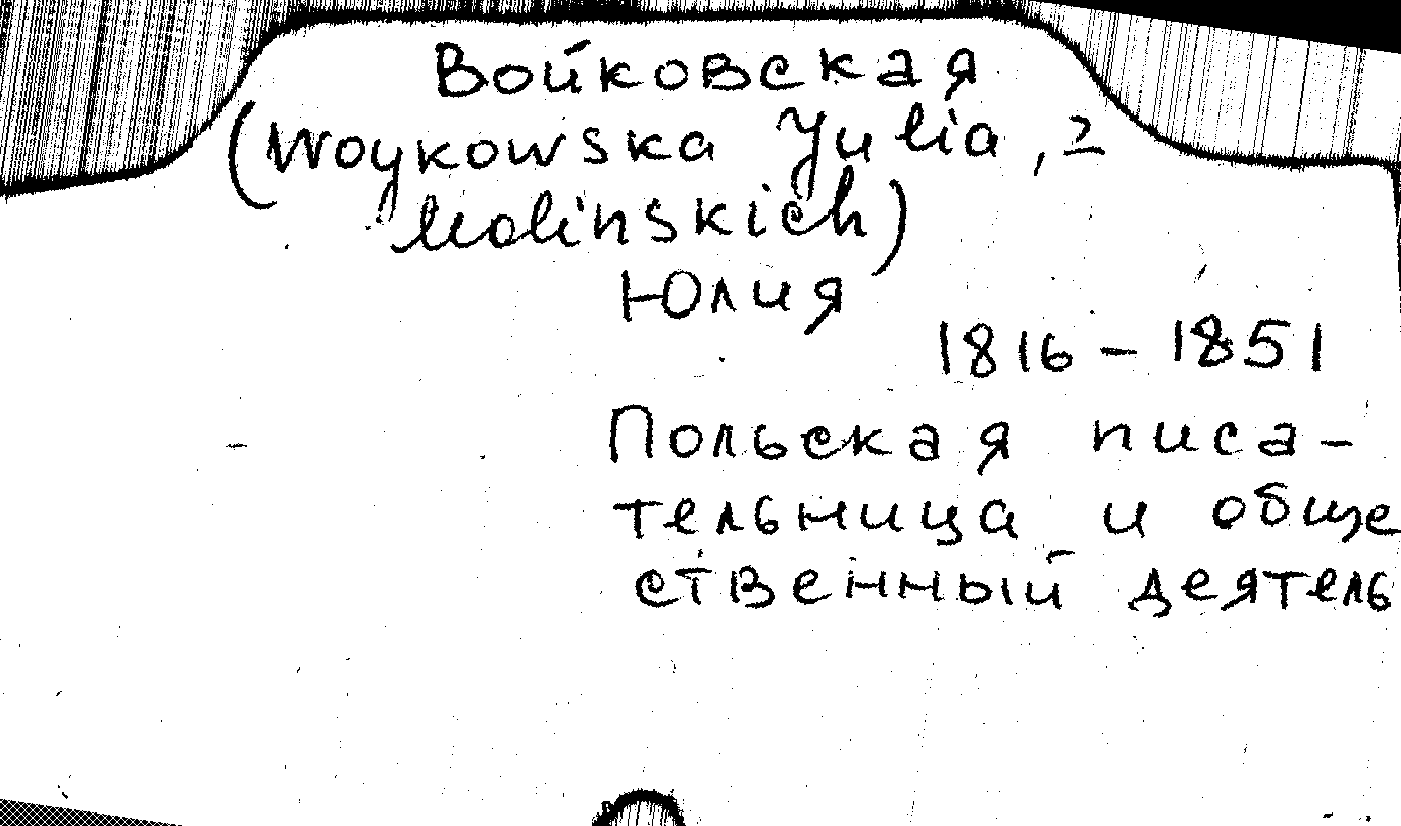 Войковская
(Woykowska Julia, z
Molinskich)
Юлия
1816 – 1851
Польская писа-
тельница и обще
ственный деятель